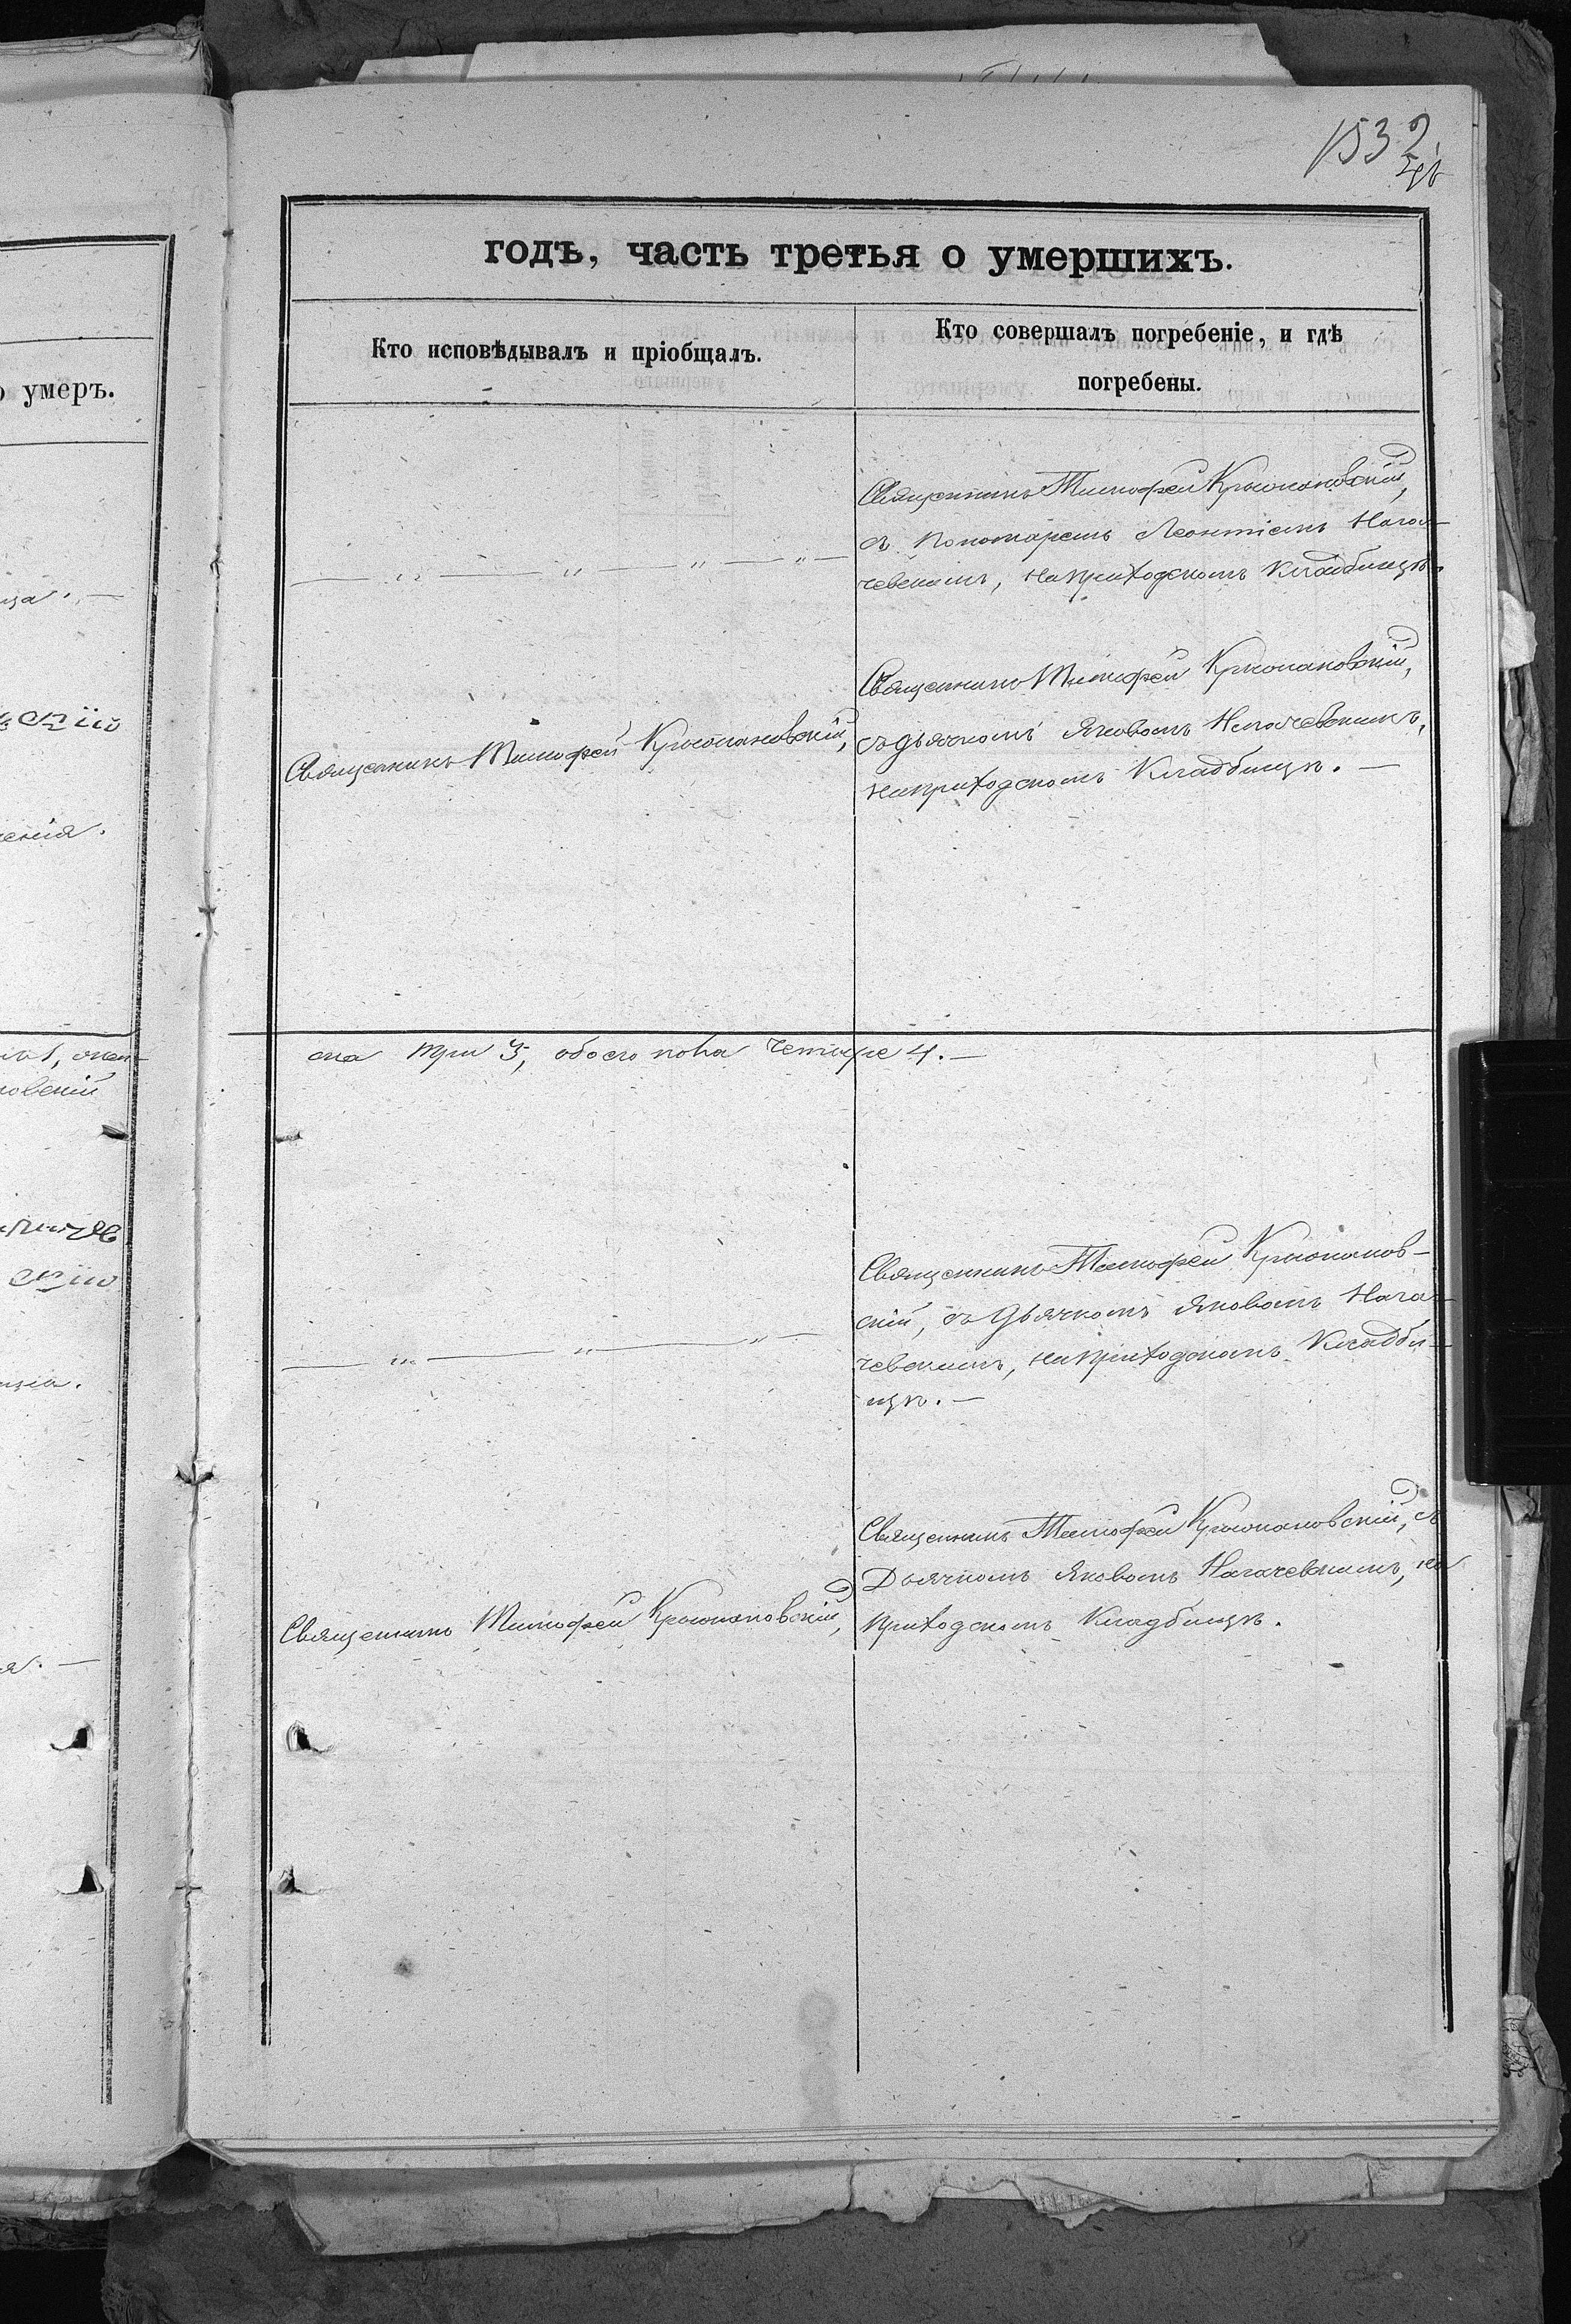 1532
годъ, часть третья о умершихъ.
Кто исповѣдывалъ и пріобщалъ.
Кто совершалъ погребеніе, и гдѣ
погребены.
о умеръ.
Священникъ Тимофей Крыжановскій,
съ пономаремъ Леонтіемъ Нага-
чевскимъ, на приходскомъ кладбищѣ.
Священникъ Тимофей Крыжановскій,
Священникъ Тимофей Крыжановскій,
съ дьячкомъ Яковомъ Нагачевскимъ,
на приходскомъ кладбищѣ. —
ска три 3, обоего пола четыре 4. —
Священникъ Тимофей Крыжанов-
скій, съ дьячкомъ Яковомъ Нага-
чевскимъ, на приходскомъ кладби-
щѣ. —
Священникъ Тимофей Крыжановскій,
Священникъ Тимофей Крыжановскій, съ
Дьячкомъ Яковомъ Нагачевскимъ, на
приходскомъ кладбищѣ.